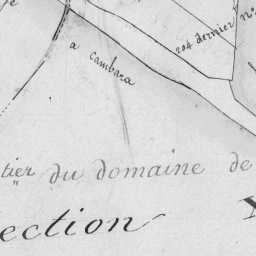 204 dernier n°
a cambara
tier du domaine de
ection